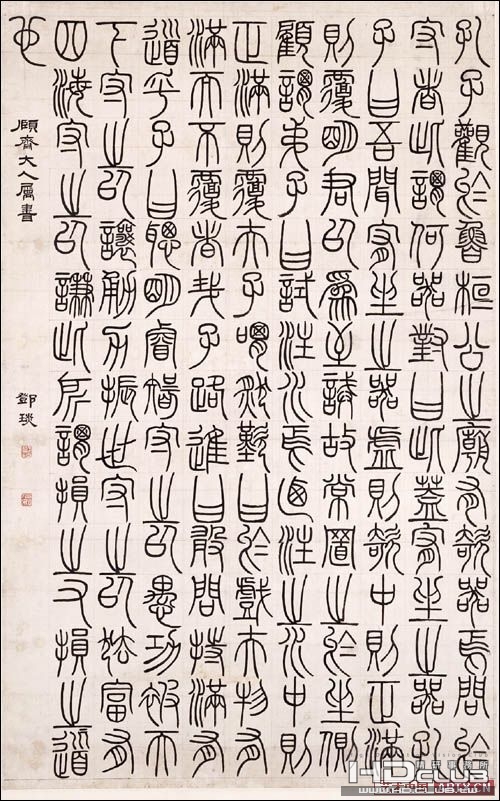 孔子觀於魯桓公之廟有欹器焉問於
守者此謂何器對曰此蓋宥坐之器孔
子曰吾聞宥坐之器虛則欹中則正滿
則覆明君以為至誡故常置之於坐側
顧謂弟子曰試注水焉乃注之水中則
正滿則覆夫子喟然歎曰於戲夫物有
滿而不覆者哉子路進曰敢問持滿有
道乎子曰聰明睿智守之以愚功被天
下守之以讓勇力振世守之以怯富有
四海守之以謙此所謂損之又損之道
也
頤齊大人属書
鄧琰
HDclub
精研事務所
WWW.HD.CLUB.TW